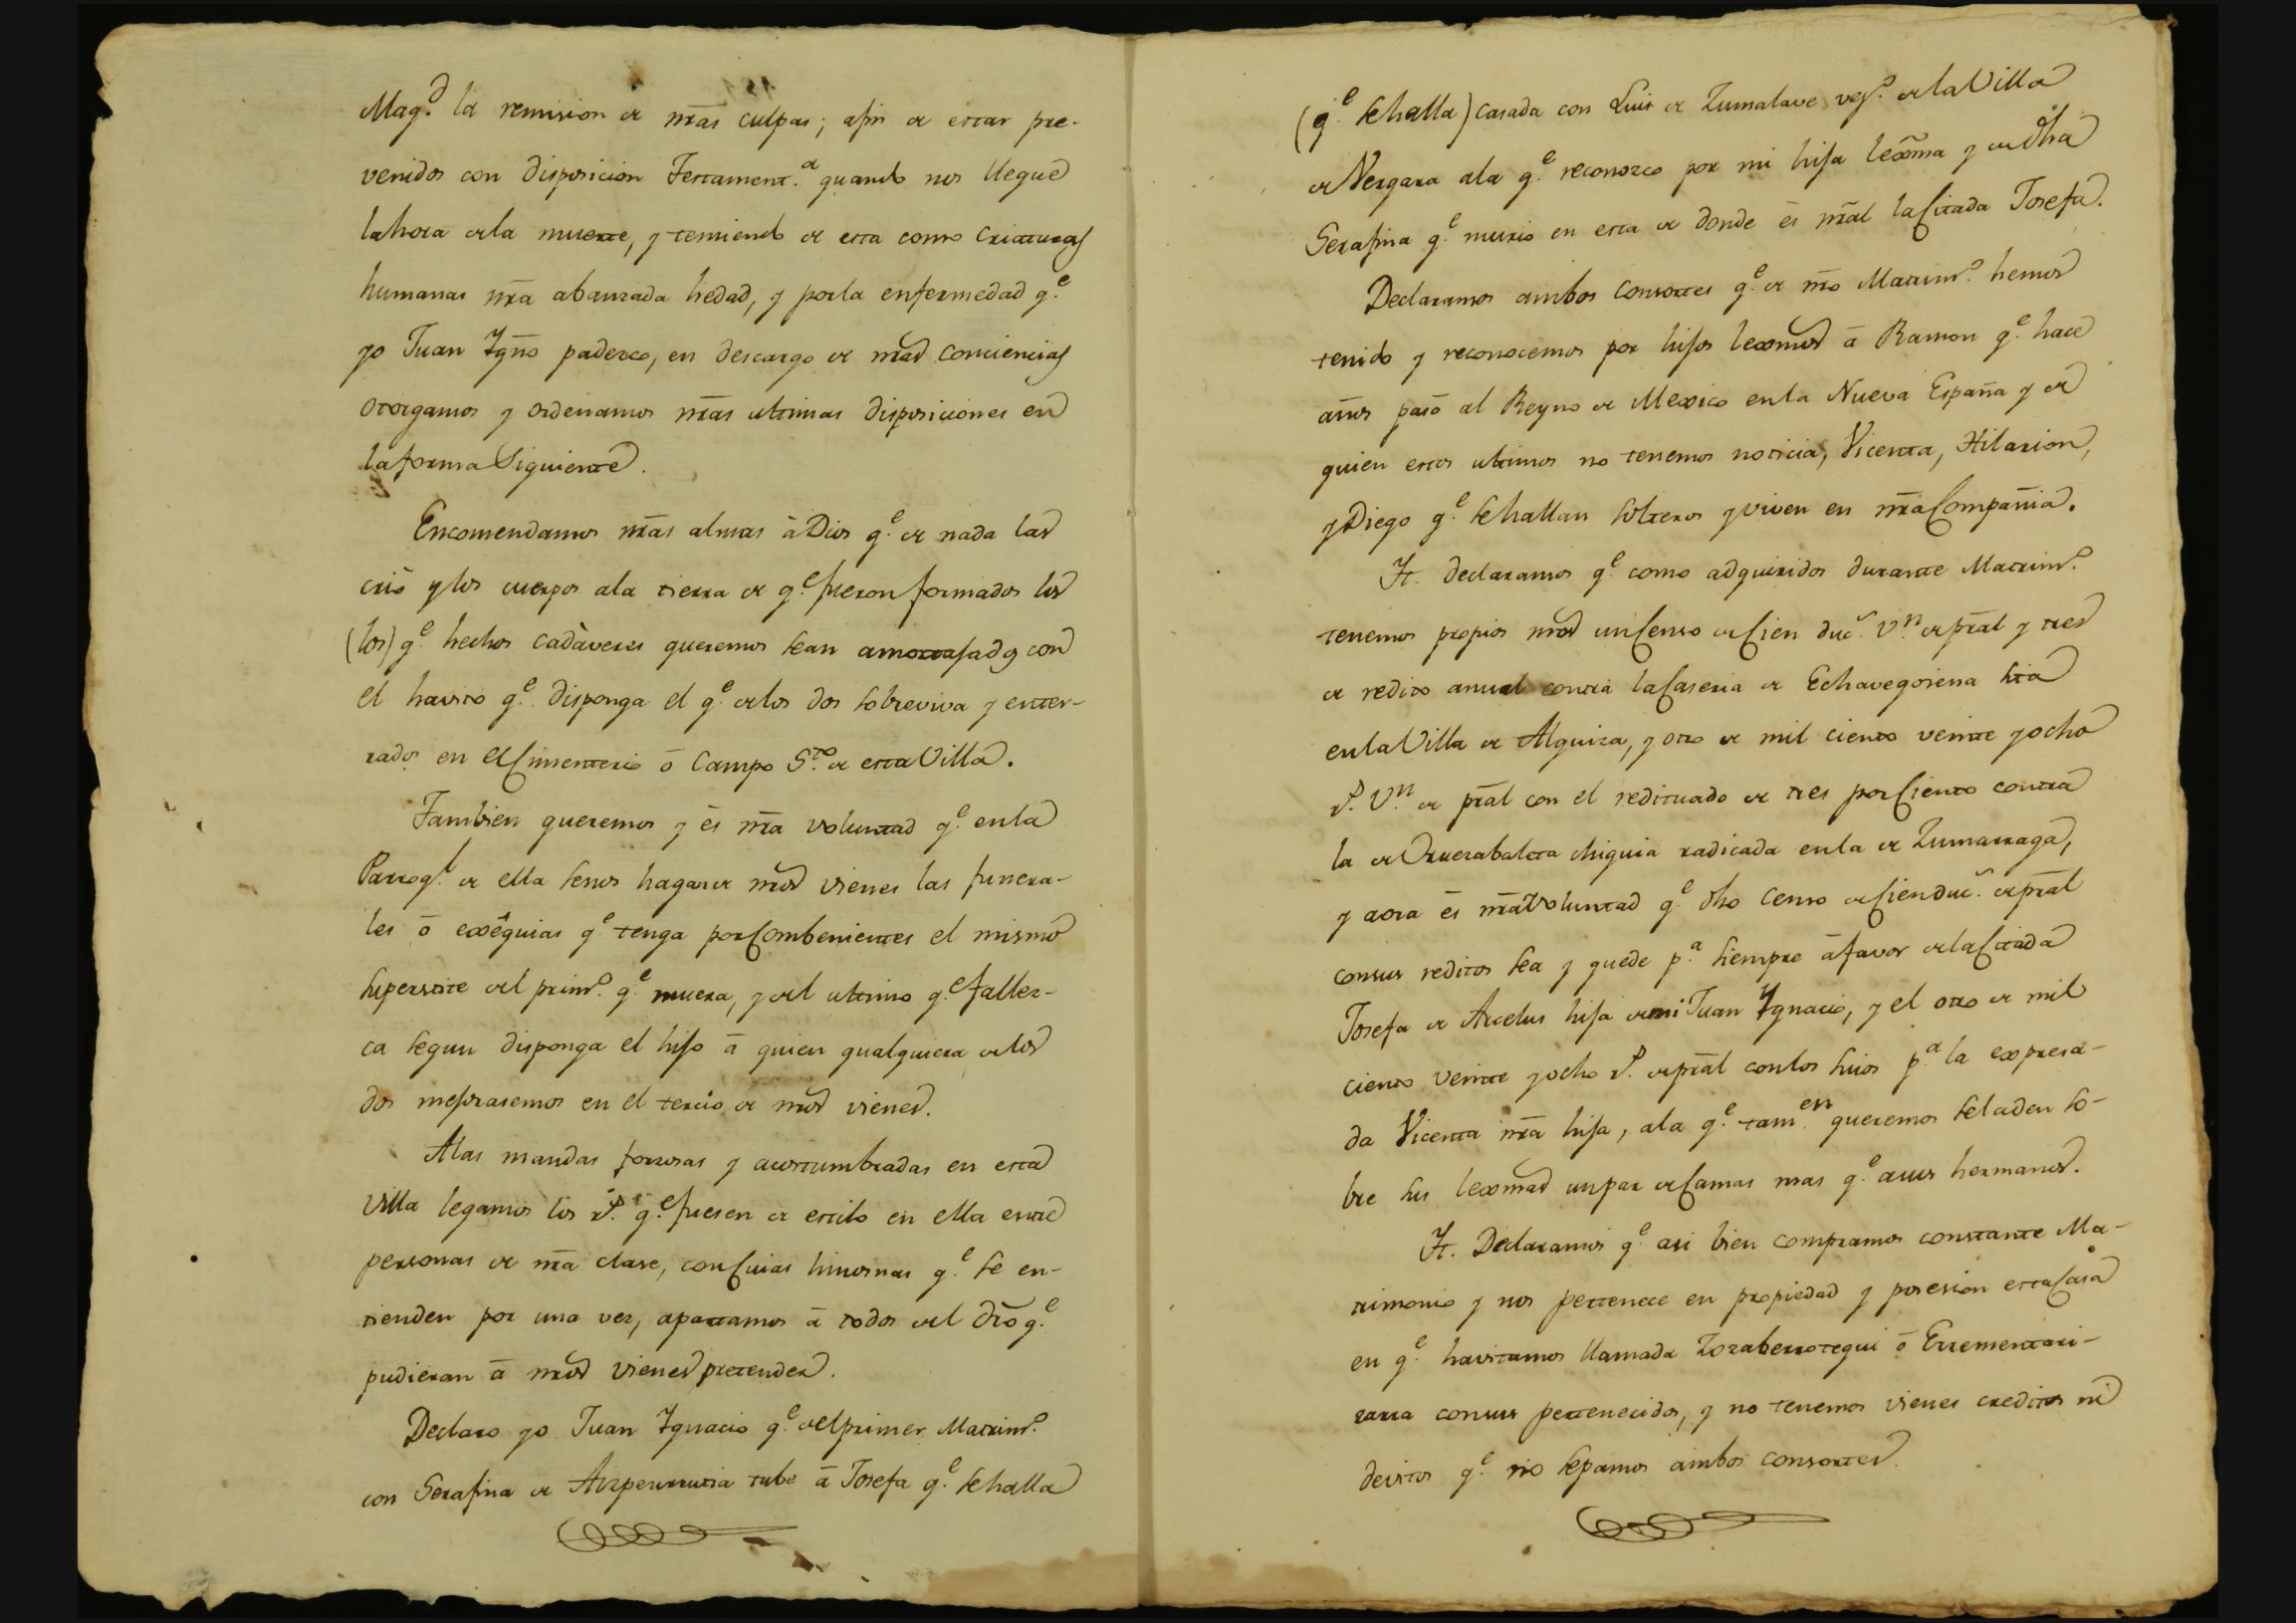 Mag.d la remision de nrãs culpas; afin de estar pre-
venidos con disposicion Testament.a quando nos llegue
la hora de la muerte, y temiendo de esta como criaturas
humanas nrã abanzada hedad, y por la enfermedad q.e
yo Juan Ygnõ padezco, en descargo de nrãs conciencias
otorgamos y ordenamos nrãs ultimas disposiciones en
la forma Siguiente.
Encomendamos nrãs almas à Dios q.e de nada las
crió y los cuerpos ala tierra de q.e fueron formados los
(los) q.e hechos cadàveres queremos sean amortajados con
el havito q.e disponga el q.e de los dos sobreviva y enter-
rados en el Cimenterio ó Campo S.to de esta Villa.
Tambien queremos y és nrã voluntad q.e en la
Parroq.l de ella senos hagan de nrõs vienes las funera-
les ó exêquias q.e tenga por Combenientes el mismo
superstite del prim.o q.e muera, y del ultimo q.e fallez-
ca segun disponga el hijo á quien qualquiera de los
dos mejorasemos en el tercio de nrõs vienes.
Alas mandas forzosas y acostumbradas en esta
Villa legamos los r.s q.e fuesen de estilo en ella entre
personas de nrã clase, con Cuias limosnas q.e se en-
tienden por una vez, apartamos á todos del drõ q.e
pudieran á nrõs vienes pretender.
Declaro yo Juan Ygnacio q.e del primer Matrim.o
con Serafina de Aizpeurrutia tube á Josefa q.e se halla
(q.e se halla) casada con Luis de Zumalave vez.o de la Villa
de Vergara ala q.e reconozco por mi hija lexm̃a y de dha
Serafina q.e murio en esta de donde és nrãl la Citada Josefa.
Declaramos ambos consortes q.e de nrõ Matrim.o hemos
tenido y reconocemos por hijos lexmõs á Ramon q.e hace
años pasó al Reyno de Mexico en la Nueva España y de
quien estos ultimos no tenemos noticia, Vicenta, Hilarion,
y Diego q.e se hallan solteros y viven en nrã Compañia.
Yt. declaramos q.e como adquiridos durante Matrim.o
tenemos propios nrõs un Censo de Cien duc.s V.n de prãl y tres
de redito anual contra la Caseria de Echavegoiena sita
en la Villa de Alquiza, y otro de mil ciento veinte y ocho
r.s V.n de prãl con el redituado de tres por Ciento contra
la de Oruesabaleta chiquia radicada en la de Zumarraga,
y aora és nrã voluntad q.e dho censo de Cien duc.s de prãl
con sus reditos sea y quede p.a siempre á favor de la Citada
Josefa de Arcelus hija de mi Juan Ygnacio, y el otro de mil
ciento veinte y ocho r.s de prãl con los suios p.a la expresa-
da Vicenta nrã hija, ala q.e tam.en queremos sela den so-
bre sus lexmãs un par de Camas mas q.e a sus hermanos.
Yt. Declaramos q.e asi bien compramos constante Ma-
trimonio y nos pertenece en propiedad y posesion esta Casa
en q.e havitamos llamada Zozaberrotegui ó Errementari-
zarra con sus pertenecidos, y no tenemos vienes creditos ni
devitos q.e no sepamos ambos consortes.